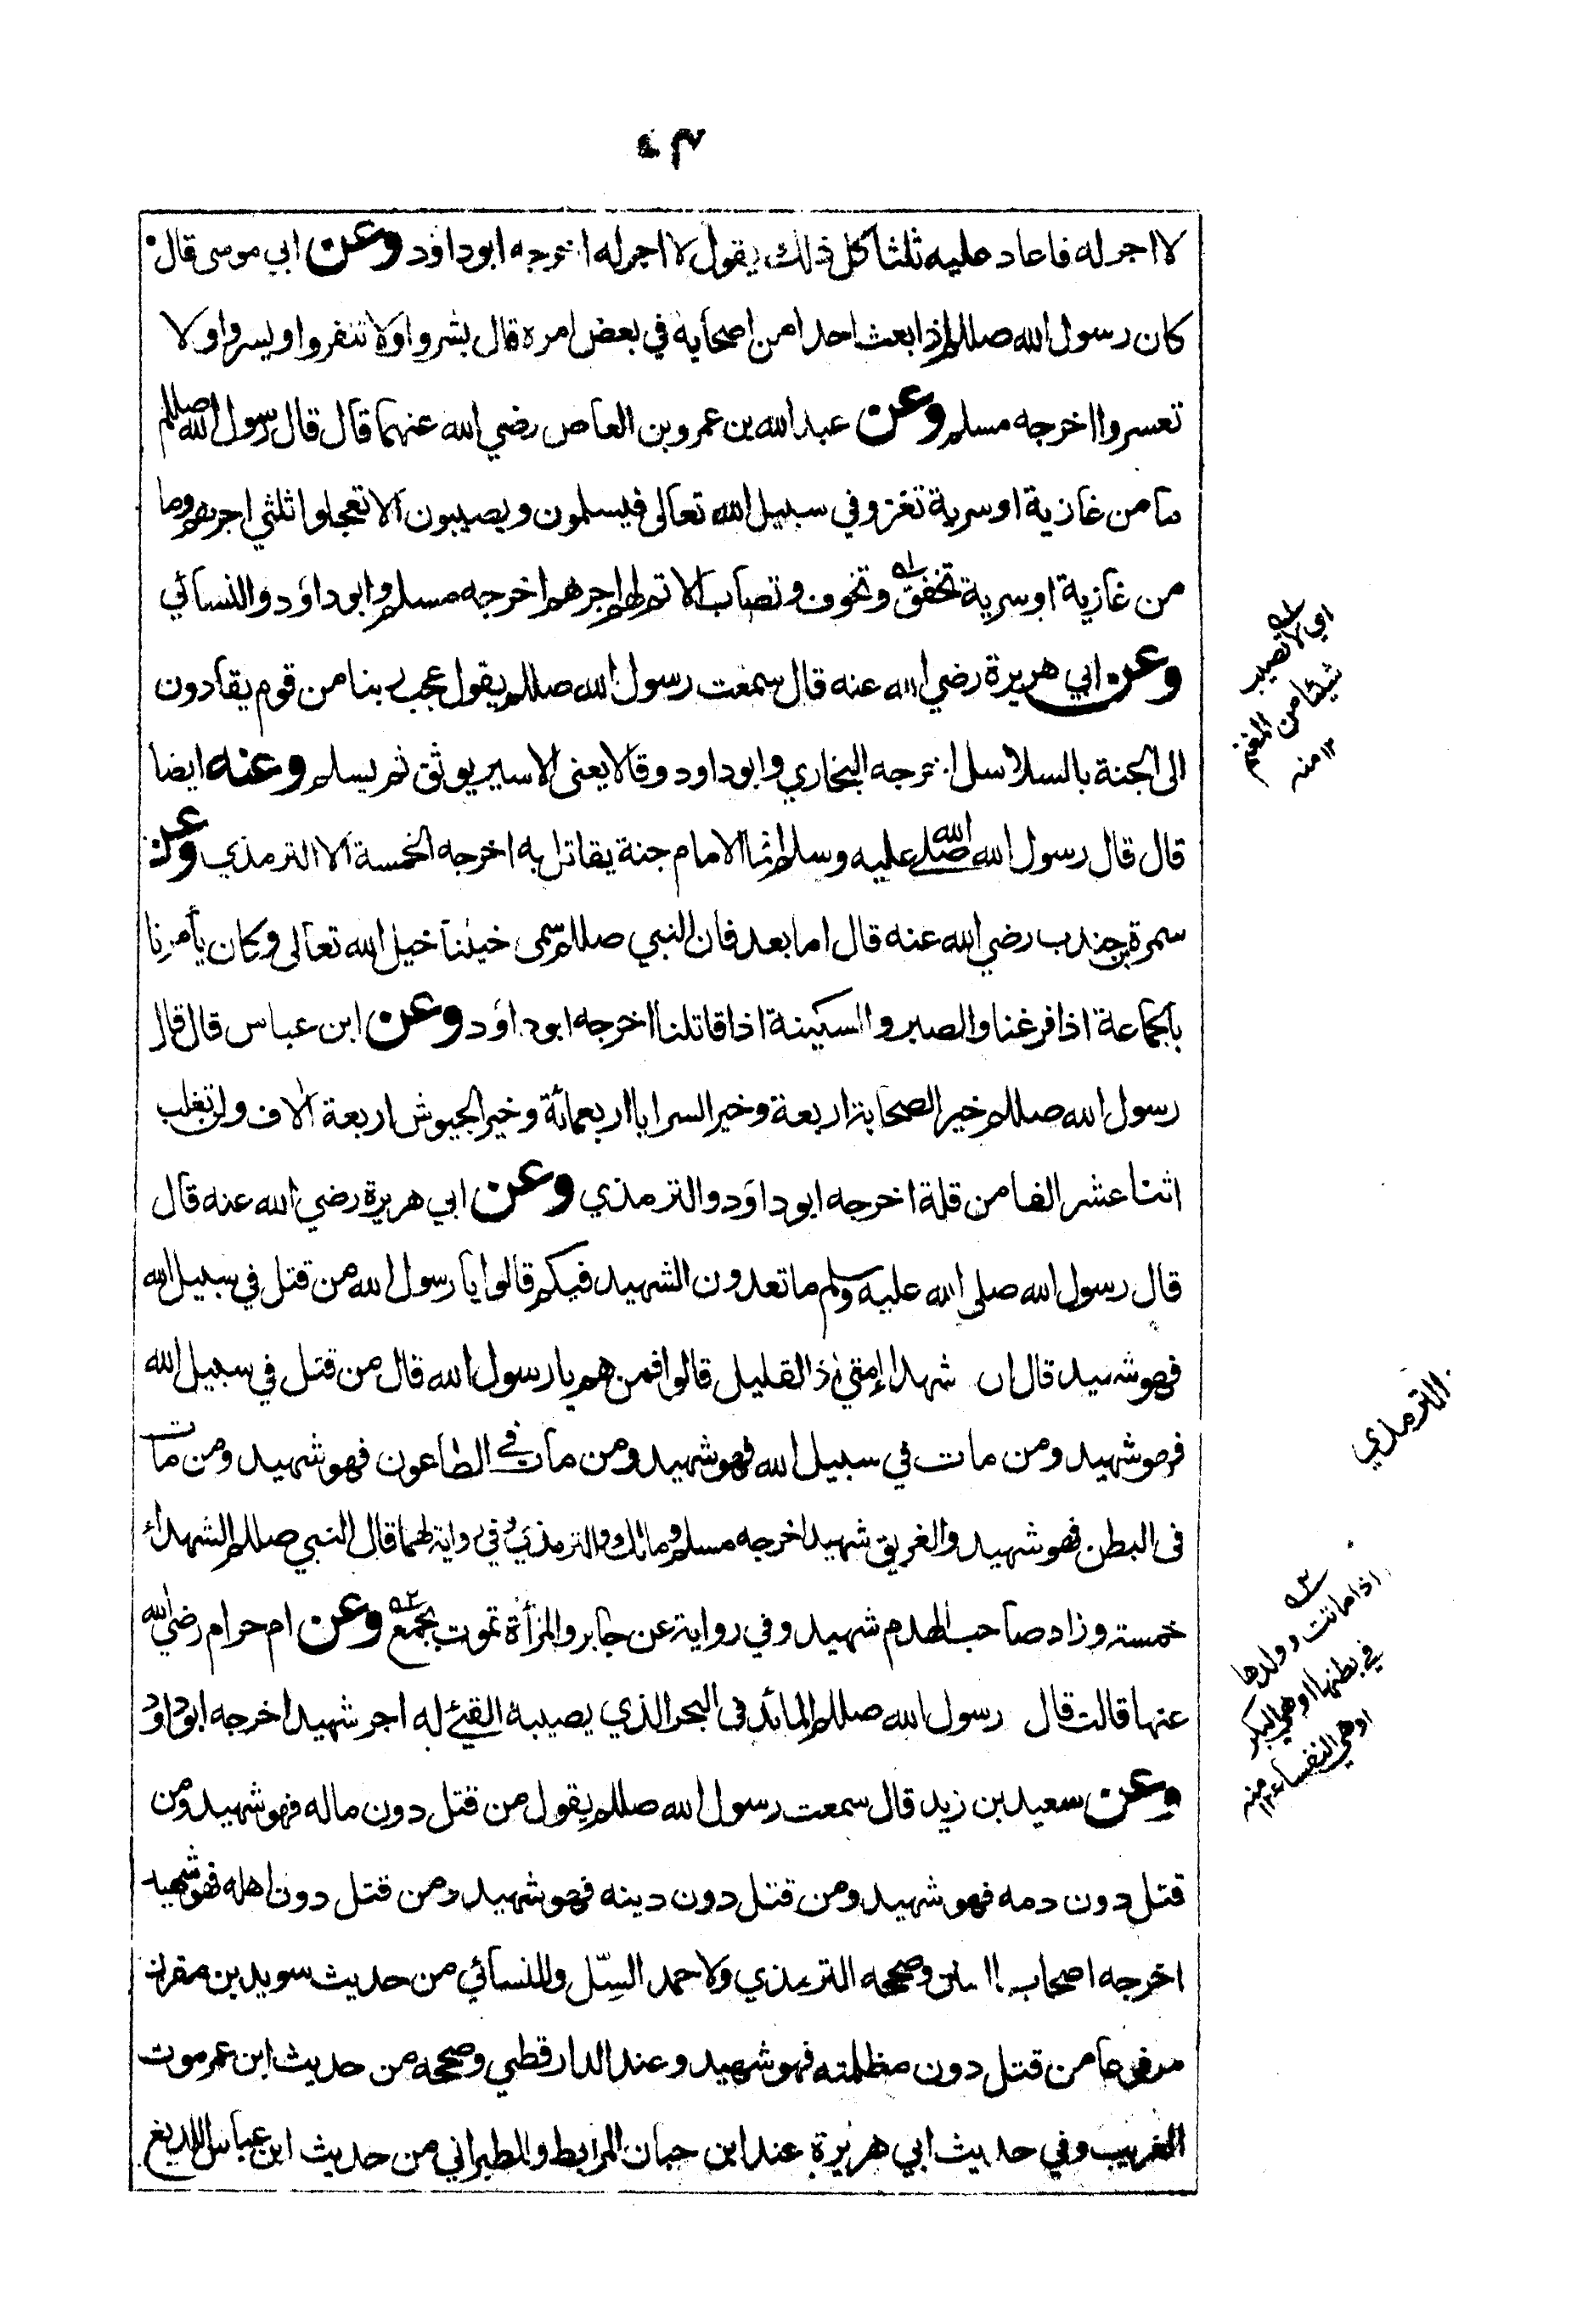 لا اجر له فاعاد عليه ثلثا كل ذلك يقول لا اجر له اخرجه ابو داؤد وعن ابي موسى قال
كان رسول الله صللم اذا بعث احدا من اصحابه في بعض امره قال بشروا ولا تنفروا ويسروا ولا
تعسروا اخرجه مسلم وعن عبد الله بن عمرو بن العاص رضي الله عنهما قال قال رسول الله صللم
ما من غازية او سرية تغزو في سبيل الله تعالى فيسلمون ويصيبون الا تعجلوا ثلثي اجرهم وما
من غازية او سرية تخفق وتخوف وتصاب الا تم لهم اجرهم اخرجه مسلم وابو داؤد والنسائي
وعن ابي هريرة رضي الله عنه قال سمعت رسول الله صللم يقول عجب ربنا من قوم يقادون
الى الجنة بالسلاسل اخرجه البخاري وابو داود وقالا يعنى الاسير يوثق ثم يسلم وعنه ايضا
قال قال رسول الله صلى الله عليه وسلم انما الامام جنة يقاتل به اخرجه الخمسة الا الترمذي وعن
سمرة بن جندب رضي الله عنه قال اما بعد فان النبي صللم سمى خيلنا خيل الله تعالى وكان يأمرنا
بالجماعة اذا فرغنا والصبر والسكينة اذا قاتلنا اخرجه ابو داؤد وعن ابن عباس قال قال
رسول الله صللم خير الصحابة اربعة وخير السرايا اربعمائة وخير الجيوش اربعة الاف ولن تغلب
اثنا عشر الفا من قلة اخرجه ابو داؤد والترمذي وعن ابي هريرة رضي الله عنه قال
قال رسول الله صلى الله عليه وسلم ما تعدون الشهيد فيكم قالوا يا رسول الله من قتل في سبيل الله
فهو شهيد قال ان شهداء امتي اذ القليل قالوا فمن هم يا رسول الله قال من قتل في سبيل الله
فهو شهيد ومن مات في سبيل الله فهو شهيد ومن مات في الطاعون فهو شهيد ومن مات
فى البطن فهو شهيد والغريق شهيد اخرجه مسلم ومالك والترمذي وفي رواية لهما قال النبي صللم الشهداء
خمسة وزاد صاحب الهدم شهيد وفي رواية عن جابر والمرأة تموت بجمع وعن ام حرام رضي الله
عنها قالت قال رسول الله صللم المائد فى البحر الذي يصيبه القئ له اجر شهيد اخرجه ابو داؤد
وعن سعيد بن زيد قال سمعت رسول الله صللم يقول من قتل دون ماله فهو شهيد ومن
قتل دون دمه فهو شهيد ومن قتل دون دينه فهو شهيد ومن قتل دون اهله فهو شهيد
اخرجه اصحاب السنن وصححه الترمذي ولاحمد السل وللنسائي من حديث سويد بن مقرن
مرفوعا من قتل دون مظلمته فهو شهيد وعند الدارقطني وصححه من حديث ابن عمر موت
الغريب وفي حديث ابي هريرة عند ابن حبان المرابط وللطبراني من حديث ابن عباس اللديغ
اي لا تصيب
شيئا من المغنم
١٢ منه
الترمذي
اذا ماتت وولدها
في بطنها او هي البكر
او هي النفساء ١٢ منه